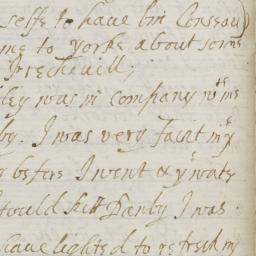 selfe to haue bin Conseau
me to yorke about some
Frechevill;
ley was in company wth me
by. I was very faint my
before I went & ye wate
I would kill Danby I was
haue lighted to refresh my